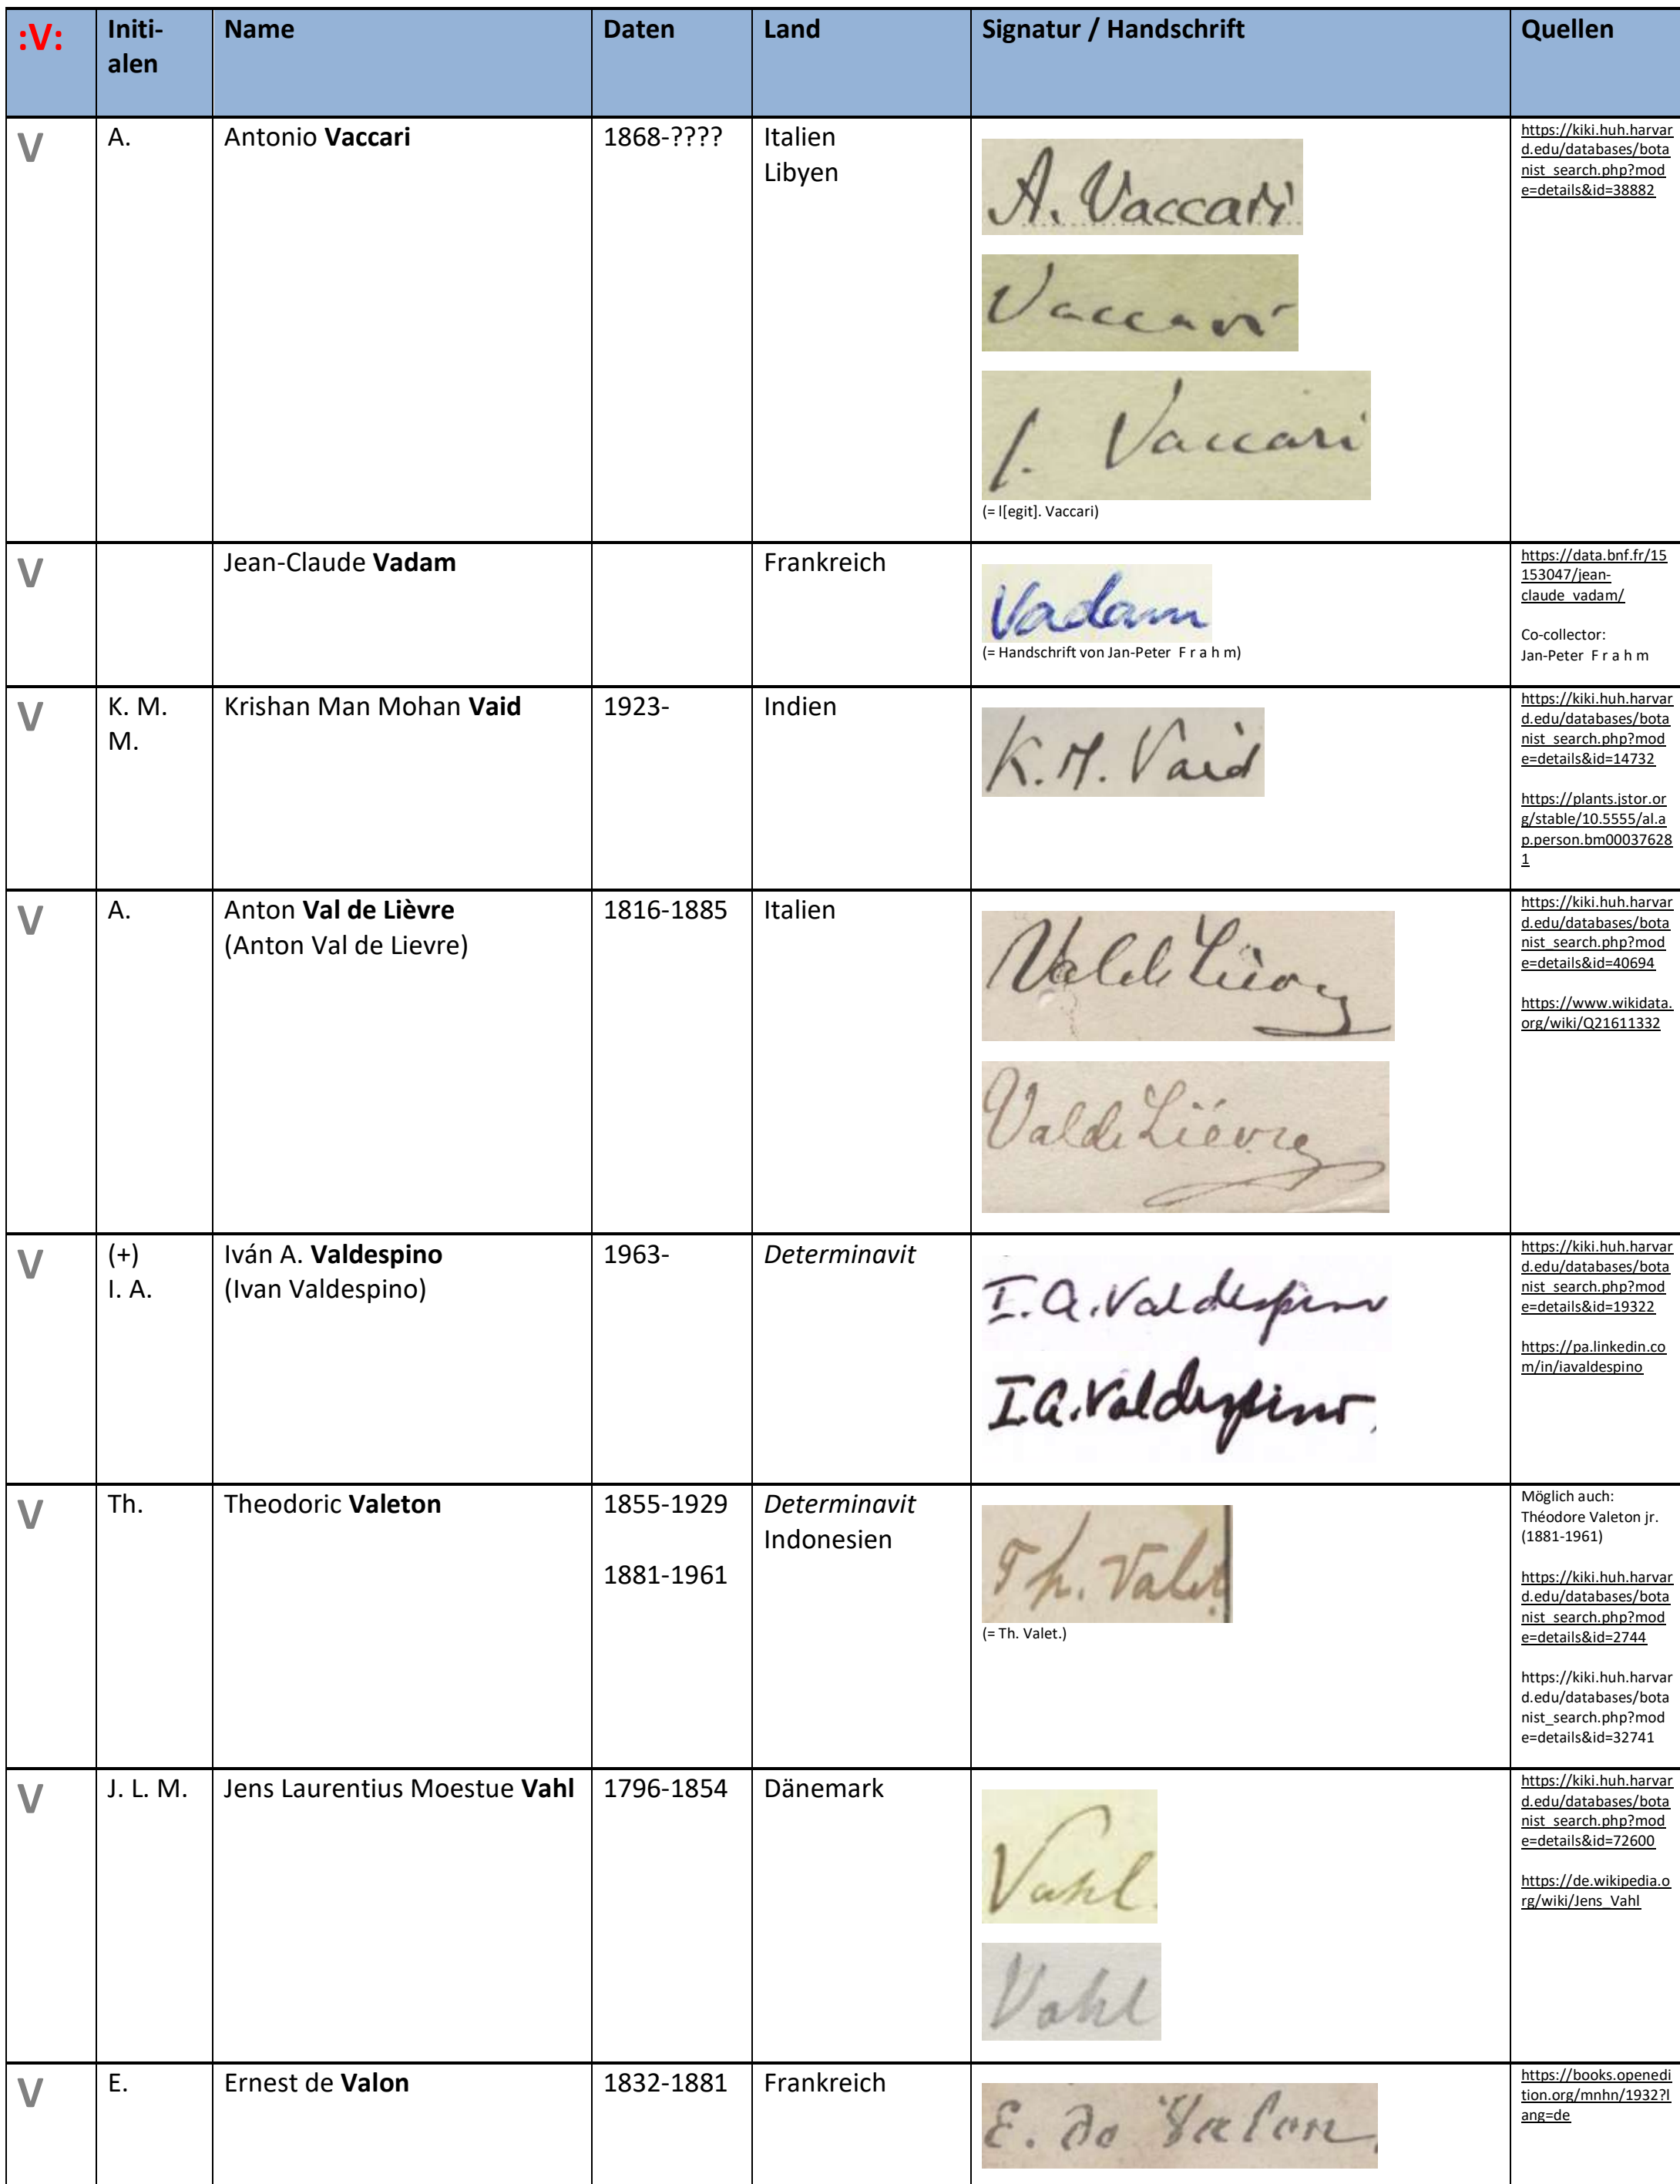 :V: Initi- Name Daten Land Signatur / Handschrift Quellen
alen
V A. Antonio Vaccari 1868-???? Italien
Libyen
A. Vaccari
Vaccari
l. Vaccari
(= l[egit]. Vaccari)
https://kiki.huh.harvar
d.edu/databases/bota
nist_search.php?mod
e=details&id=38882
V Jean-Claude Vadam Frankreich
Vadam
(= Handschrift von Jan-Peter F r a h m)
https://data.bnf.fr/15
153047/jean-
claude_vadam/
Co-collector:
Jan-Peter F r a h m
V K. M. Krishan Man Mohan Vaid 1923- Indien
M.
K. M. Vaid
https://kiki.huh.harvar
d.edu/databases/bota
nist_search.php?mod
e=details&id=14732
https://plants.jstor.or
g/stable/10.5555/al.a
p.person.bm00037628
1
V A. Anton Val de Lièvre 1816-1885 Italien
(Anton Val de Lievre)
Val de Lièvre
Val de Liévre
https://kiki.huh.harvar
d.edu/databases/bota
nist_search.php?mod
e=details&id=40694
https://www.wikidata.
org/wiki/Q21611332
V (+) Iván A. Valdespino 1963- Determinavit
I. A. (Ivan Valdespino)
I. A. Valdespino
I. A. Valdespino
https://kiki.huh.harvar
d.edu/databases/bota
nist_search.php?mod
e=details&id=19322
https://pa.linkedin.co
m/in/iavaldespino
V Th. Theodoric Valeton 1855-1929 Determinavit
Indonesien
1881-1961
Th. Valet.
(= Th. Valet.)
Möglich auch:
Théodore Valeton jr.
(1881-1961)
https://kiki.huh.harvar
d.edu/databases/bota
nist_search.php?mod
e=details&id=2744
https://kiki.huh.harvar
d.edu/databases/bota
nist_search.php?mod
e=details&id=32741
V J. L. M. Jens Laurentius Moestue Vahl 1796-1854 Dänemark
Vahl.
Vahl
https://kiki.huh.harvar
d.edu/databases/bota
nist_search.php?mod
e=details&id=72600
https://de.wikipedia.o
rg/wiki/Jens_Vahl
V E. Ernest de Valon 1832-1881 Frankreich
E. de Valon.
https://books.openedi
tion.org/mnhn/1932?l
ang=de